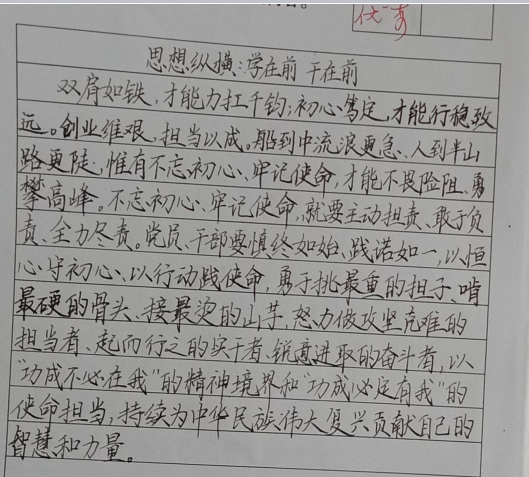 思想纵横:学在前 干在前
双肩如铁,才能力扛千钧;初心笃定,才能行稳致
远。创业维艰,担当以成。船到中流浪更急、人到半山
路更陡,惟有不忘初心、牢记使命,才能不畏险阻、勇
攀高峰。不忘初心、牢记使命,就要主动担责、敢于负
责、全力尽责。党员、干部要慎终如始、践诺如一,以恒
心守初心、以行动践使命,勇于挑最重的担子、啃
最硬的骨头、接最烫的山芋,努力做攻坚克难的
担当者、起而行之的实干者、锐意进取的奋斗者,以
“功成不必在我”的精神境界和“功成必定有我”的
使命担当,持续为中华民族伟大复兴贡献自己的
智慧和力量。